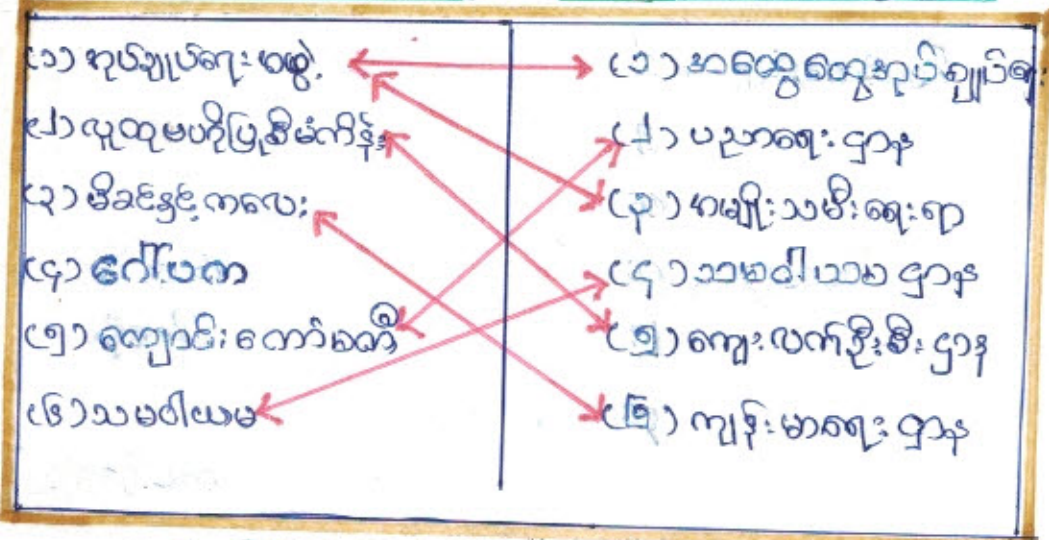 (၁) အုပ်ချုပ်ရေးအဖွဲ့
(၂) လူထုမဟိုပြုစီမံကိန်း
(၃) မိခင်နှင့်ကလေး
(၄) ဂေါပက
(၅) ကျောင်းကော်မတီ
(၆) သမဝါယမ
(၁) အထွေထွေအုပ်ချုပ်ရေး
(၂) ပညာရေးဌာန
(၃) အမျိုးသမီးရေးရာ
(၄) သမဝါယမဌာန
(၅) ကျေးလက်ဦးစီးဌာန
(၆) ကျန်းမာရေးဌာန